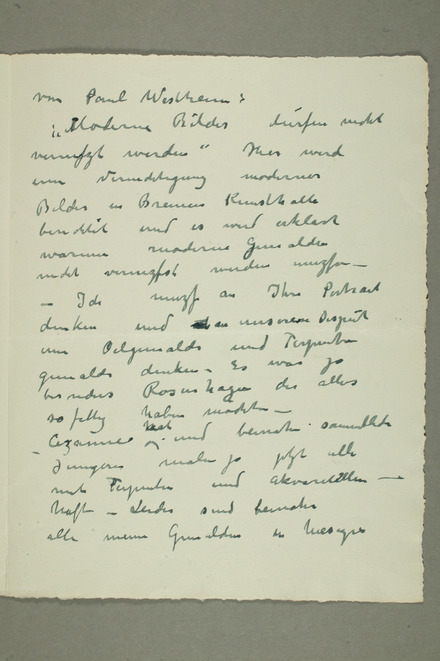 von Paul Westheim:
„Moderne Bilder dürfen nicht
vernifzt werden“ Hier wird
eine Verniedigung moderner
Bilder in Bremens Kunsthalle
berichtet und es wird erklärt
warum moderne Gemälden
nicht vernizfst werden
– Ich muzf an Ihre Portrait
denken und an unseren Disput
um Oelgemälde und Terpentin
gemälde denken – Es war ja
besonders Rosenhagen der alles
so fettig haben möchte –
– Cezanne und beinahe sämmtliche
Jüngere malen ja jetzt alle
mit Terpentin und
haft – Leider sind beinahe
alle meine Gemälden in